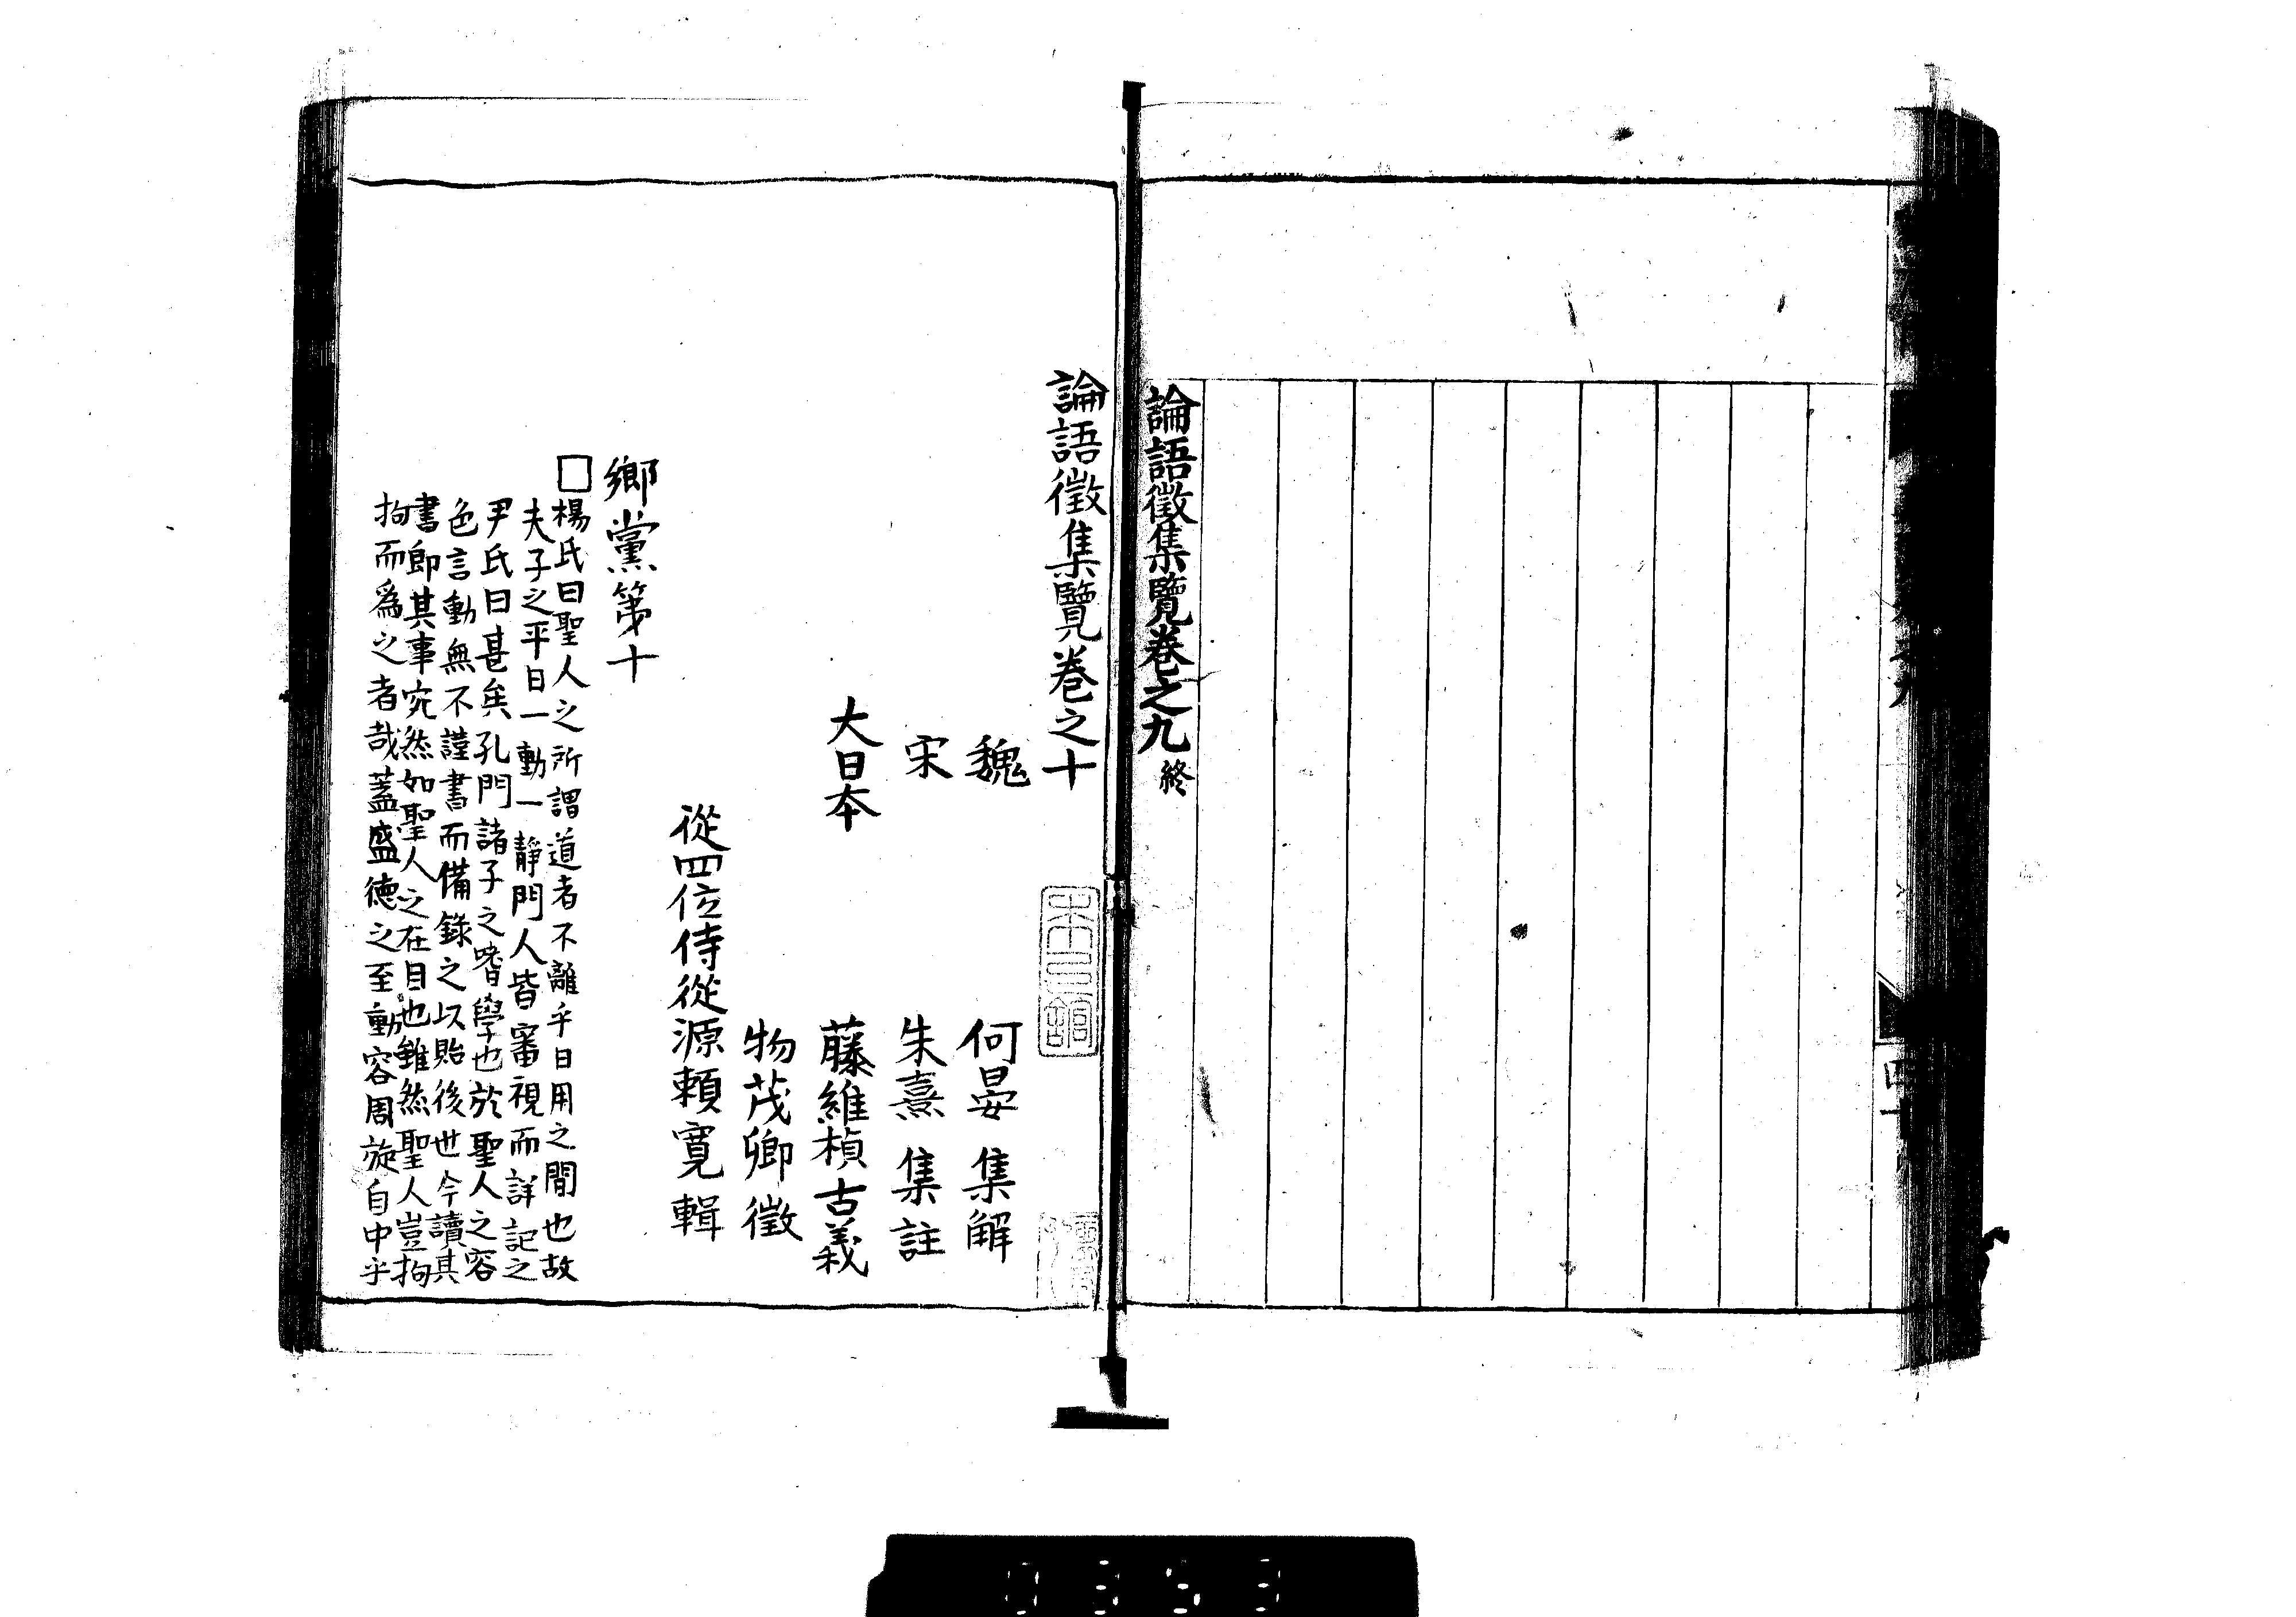 論語徵集覽卷之九 終
論語徵集覽卷之十
魏 何晏 集解
宋 朱熹 集註
大日本 藤維楨古義
物茂卿徵
從四位侍從源頼寬輯
鄉黨第十
□楊氏曰聖人之所謂道者不離乎日用之間也故
夫子之平日一動一靜門人皆審視而詳記之
尹氏曰甚矣孔門諸子之嗜學也於聖人之容
色言動無不謹書而備錄之以貽後世今讀其
書卽其事宛然如聖人之在目也雖然聖人豈拘
拘而爲之者哉蓋盛德之至動容周旋自中乎
0353